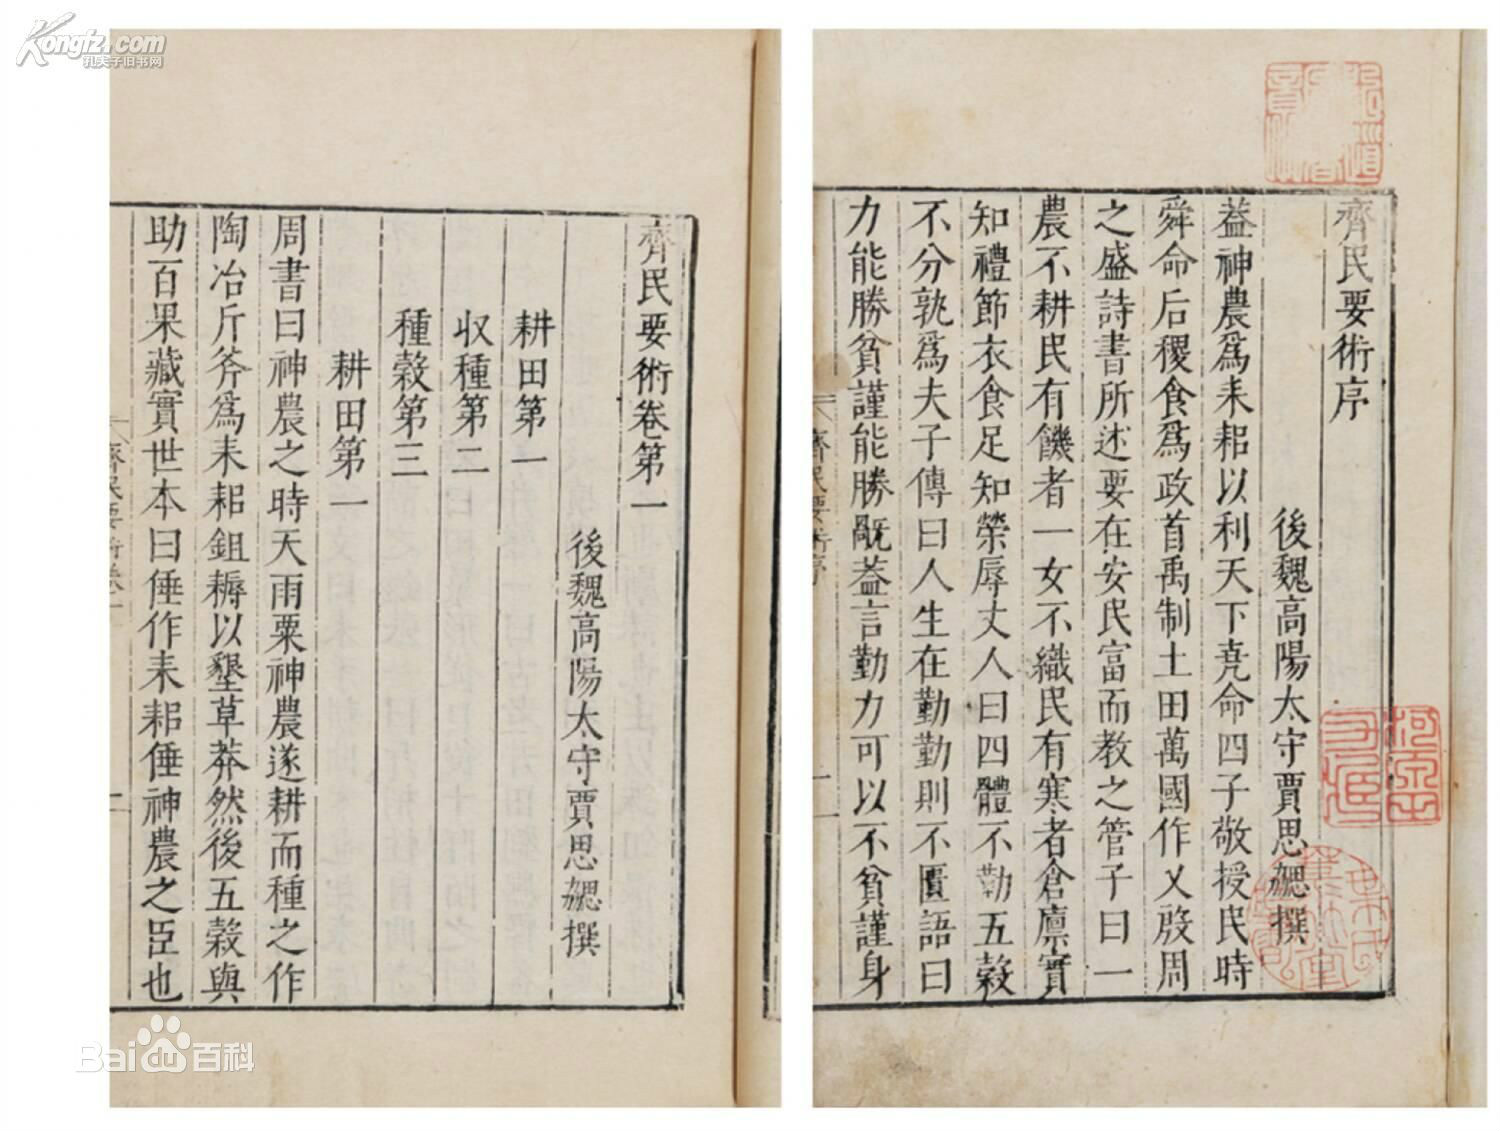 Kongfz.com
孔夫子旧书网
齊民要術序
後魏高陽太守賈思勰撰
蓋神農爲耒耜以利天下堯命四子敬授民時
舜命后稷食爲政首禹制土田萬國作乂殷周
之盛詩書所述要在安民富而教之管子曰一
農不耕民有饑者一女不織民有寒者倉廪實
知禮節衣食足知榮辱丈人曰四體不勤五穀
不分孰爲夫子傳曰人生在勤勤則不匱語曰
力能勝貧謹能勝旤蓋言勤力可以不貧謹身
齊民要術序
齊民要術卷第一
後魏高陽太守賈思勰撰
耕田第一
収種第二
種穀第三
耕田第一
周書曰神農之時天雨粟神農遂耕而種之作
陶冶斤斧爲耒耜鉏耨以墾草莽然後五穀與
助百果藏實世本曰倕作耒耜倕神農之臣也
齊民要術卷一
Baidu百科